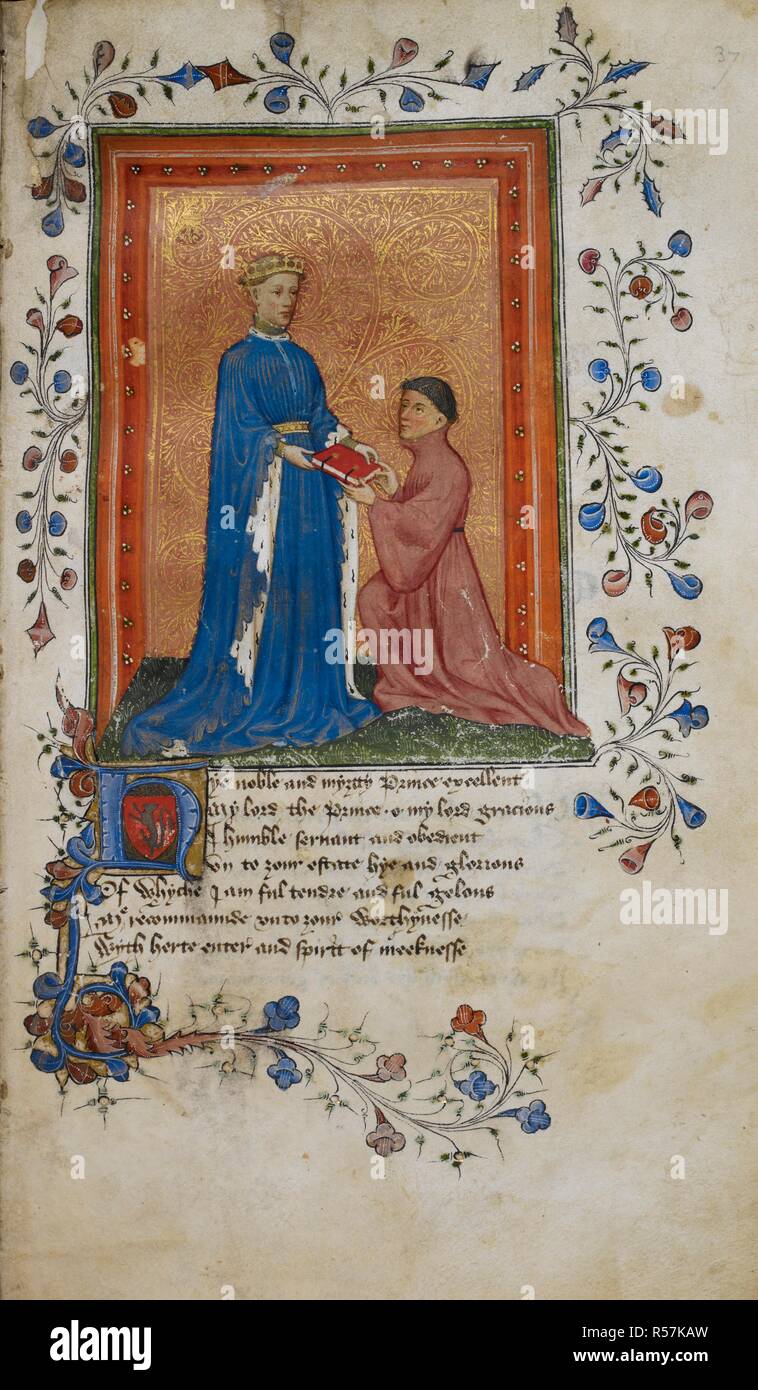 37
Hye noble and myghty Prince excellent
My lord the Prince o my lord gracious
I humble servant and obedient
Un to your estate hye and glorious
Of whyche I am ful tendre and ful gelous
Me recommaunde unto your worthynesse
Wyth herte enter and spirit of meeknesse
alamy
Image ID: R57KAW
www.alamy.com